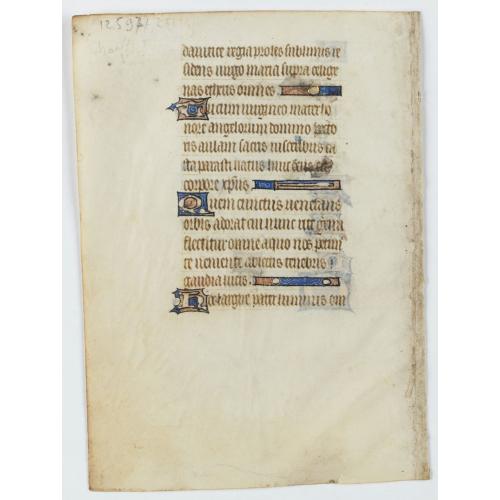 12.597
dauitice regia proles sublimis re
sidens uirgo maria supra celige
nas etheris omnes.
Tu cum uirgineo mater ho
nore angelorum domino pecto
ris aulam sacris uisceribus ca
sta parasti natus hinc deus est
corpore xpus
Quem cunctus uenerans
orbis adorat cui nunc rite genu
flectitur omne a quo nos petim
te ueniente abiectis tenebris
gaudia lucis.
Hoc largire pater luminis om